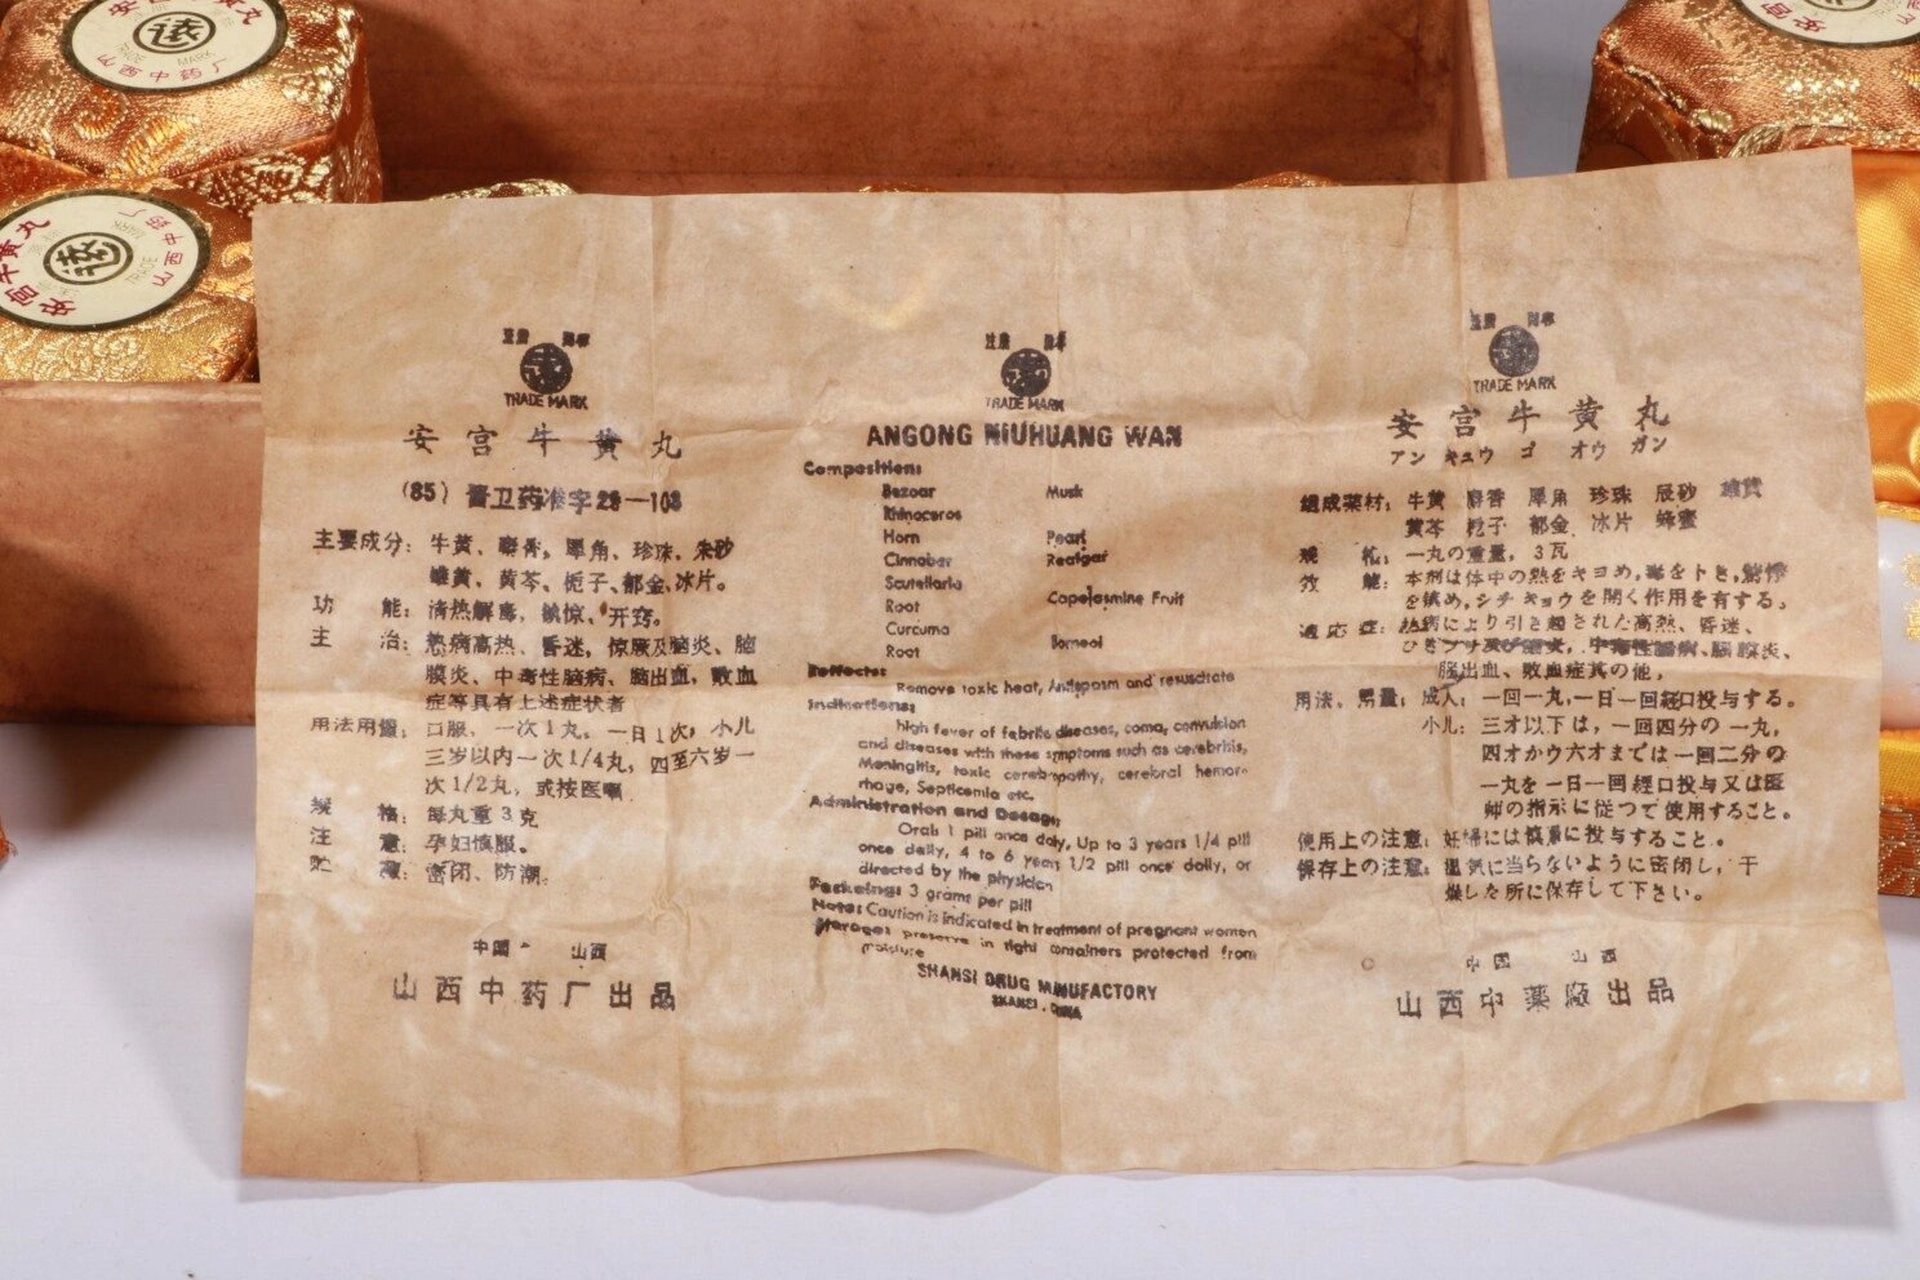 安宫牛黄丸
TRADE MARK
山西中药厂
安宫牛黄丸
TRADE
山西中药厂
TRADE MARK
安宫牛黄丸
(85) 晋卫药准字29—108
主要成分: 牛黄、麝香, 犀角、珍珠, 朱砂
雄黄、黄芩、栀子、郁金, 冰片。
功 能: 清热解毒, 镇惊, 开窍。
主 治: 热病高热、昏迷, 惊厥及脑炎、脑
膜炎、中毒性脑病、脑出血, 败血
症等具有上述症状者
用法用量: 口服, 一次1丸, 一日1次, 小儿
三岁以内一次1/4丸, 四至六岁一
次1/2丸, 或按医嘱
规 格: 每丸重3克
注 意: 孕妇慎服。
贮 藏: 密闭、防潮。
中国 山西
山西中药厂出品
TRADE MARK
ANGONG NIUHUANG WAN
Compositions
Bezoar Musk
Rhinoceros
Horn Pearl
Cinnabar Realgar
Scutellaria
Root Capelasmine Fruit
Curcuma
Root Borneol
Effects:
Remove toxic heat, Antispasm and resuscitate
Indications:
high fever of febrile diseases, coma, convulsion
and diseases with these symptoms such as cerebritis,
Meningitis, toxic cerebropathy, cerebral hemor-
rhage, Septicemia etc.
Administration and Dosage:
Oral: 1 pill once daly, Up to 3 years 1/4 pill
once daily, 4 to 6 years 1/2 pill once daily, or
directed by the physician
Packaing: 3 grams per pill
Note: Caution is indicated in treatment of pregnant women
Storage: preserve in tight containers protected from
moisture
SHANSI DRUG MANUFACTORY
SHANSI . CHINA
TRADE MARK
安宫牛黄丸
アン キュウ ゴ オウ ガン
組成薬材: 牛黄 麝香 犀角 珍珠 辰砂 雄黄
黄芩 栀子 郁金 冰片 蜂蜜
規 格: 一丸の重量, 3瓦
効 能: 本剤は体中の熱をキヨめ, 毒をトき, 驚悸
を鎮め, シチキョウを開く作用を有する,
適応症: 热病により引き起された高熱、昏迷、
脳膜炎、
脳出血、敗血症其の他,
用法、用量: 成人: 一回一丸, 一日一回経口投与する。
小儿: 三才以下は, 一回四分の一丸,
四才かウ六才までは一回二分の
一丸を一日一回経口投与又は医
師の指示に従つて使用すること。
使用上の注意: 妊婦には慎重に投与すること。
保存上の注意: 湿気に当らないように密閉し, 干
燥した所に保存して下さい。
中国 山西
山西中薬廠出品